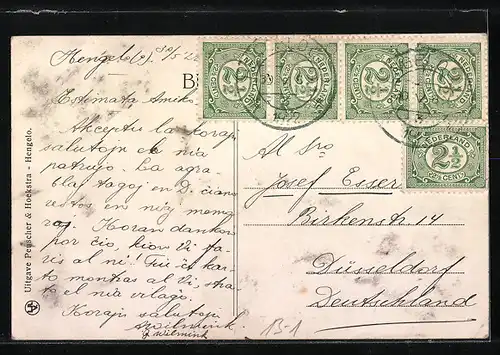 Hengelo (o) 30/5 22
Estimata Amiko.
Akceptu la koraj
salutojn el nia
patrujo. La agra-
blaj tagoj en D.
restos en nia memo-
raj. Koran dankon
por ĉio, kion Vi fa-
ris al ni! Tiu ĉi kar-
to montras al Vi, stra-
to el nia vilago.
Korajn salutojn
J. Wilmink
Uitgave Penscher & Hoekstra - Hengelo.
NEDERLAND
2½
CENT
NEDERLAND
2½
CENT
NEDERLAND
2½
CENT
NEDERLAND
2½
CENT
NEDERLAND
2½
CENT
Al Sro
Josef Esser
Birkenstr. 14
Düsseldorf
Deutschland
13-1